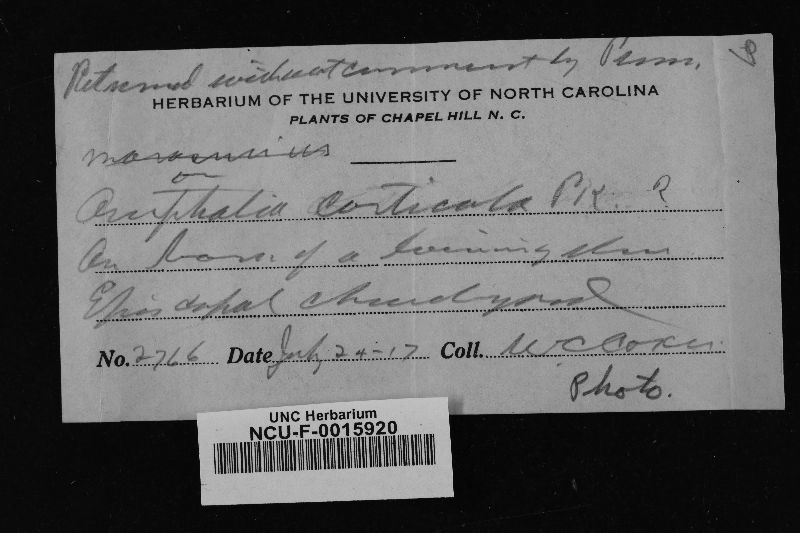 Returned without comment by Penn.
HERBARIUM OF THE UNIVERSITY OF NORTH CAROLINA
PLANTS OF CHAPEL HILL N. C.
or
Omphalia corticola Pk. ?
On bark of a living elm
Episcopal churchyard
No. 2766 Date July 24-17 Coll. W C Coker
Photo.
UNC Herbarium
NCU-F-0015920